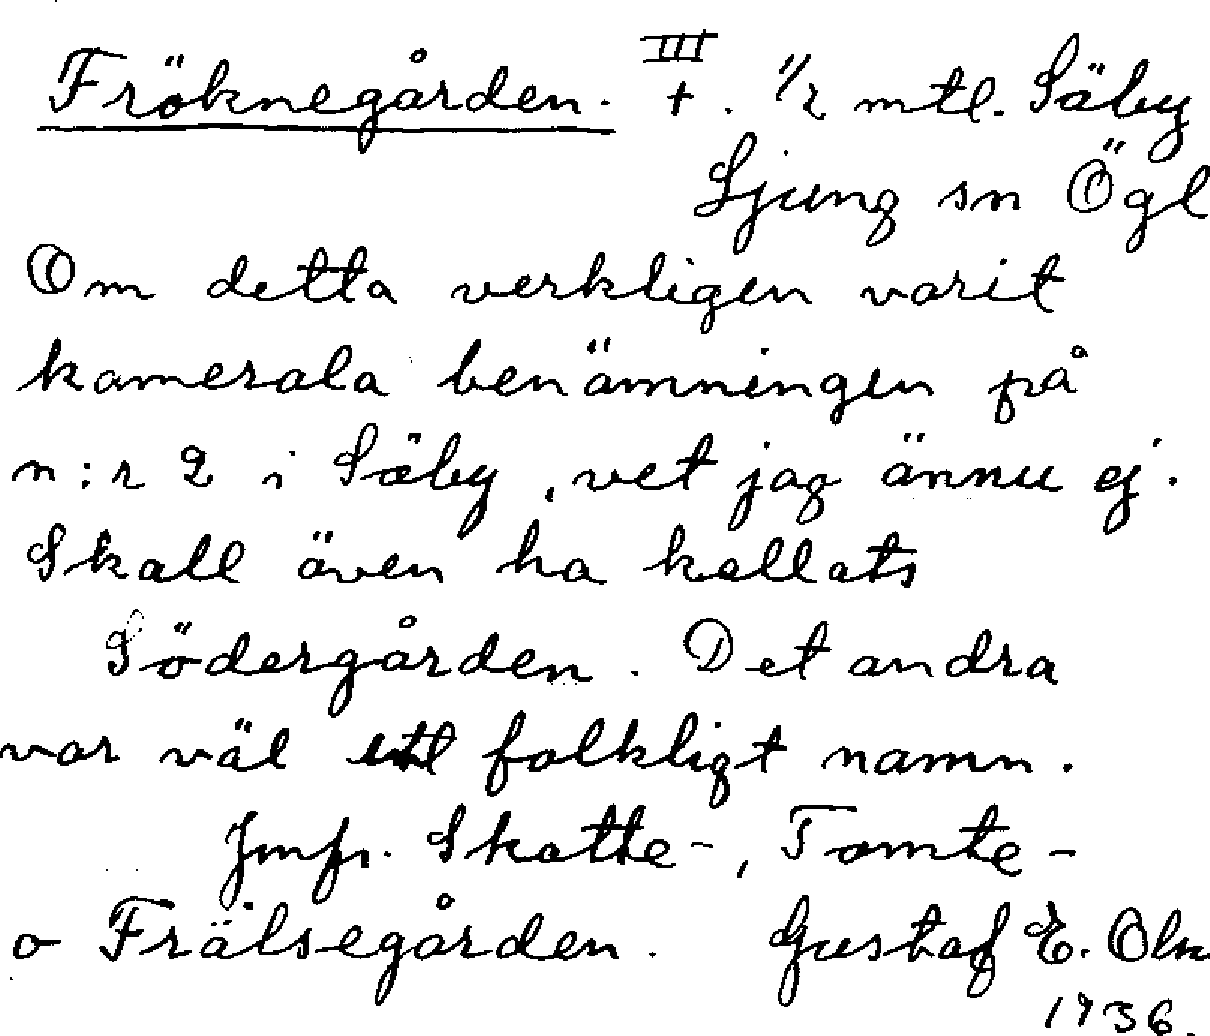 Fröknegården. III +. 1/2 mtl. Säby
Ljung sn Ögl
Om detta verkligen varit
kamerala benämningen på
n:r 2 i Säby, vet jag ännu ej.
Skall även ha kallats
Södergården. Det andra
var väl ett folkligt namn.
Jmfr. Skatte-, Tomte-
o Frälsegården. Gustaf E. Oln
1936.